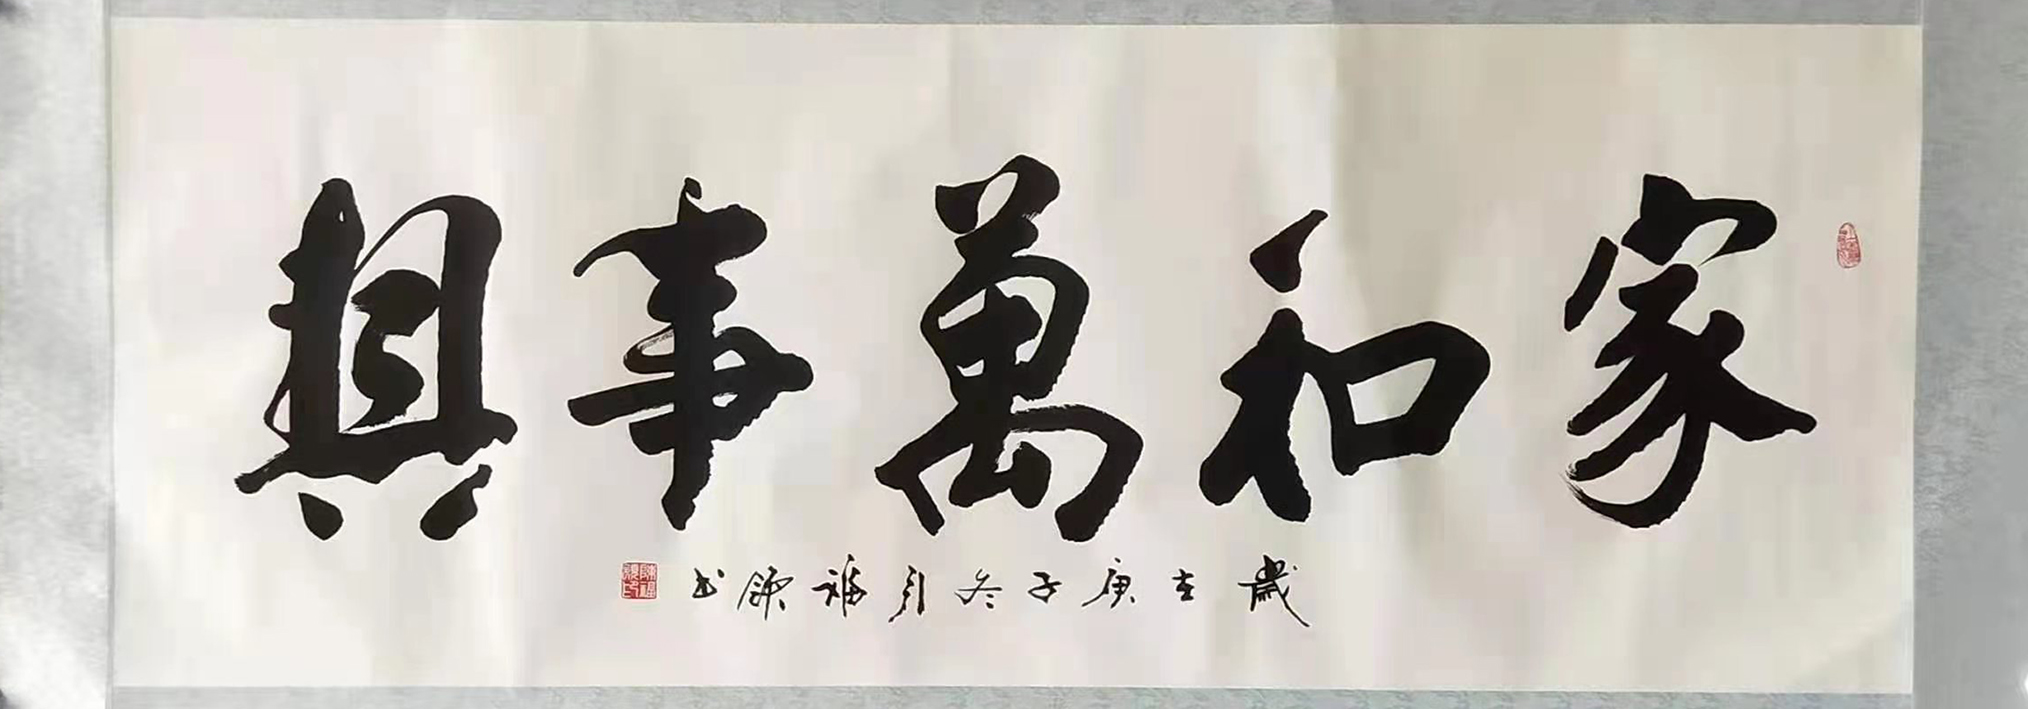 家和萬事興
歲在庚子冬月福領書